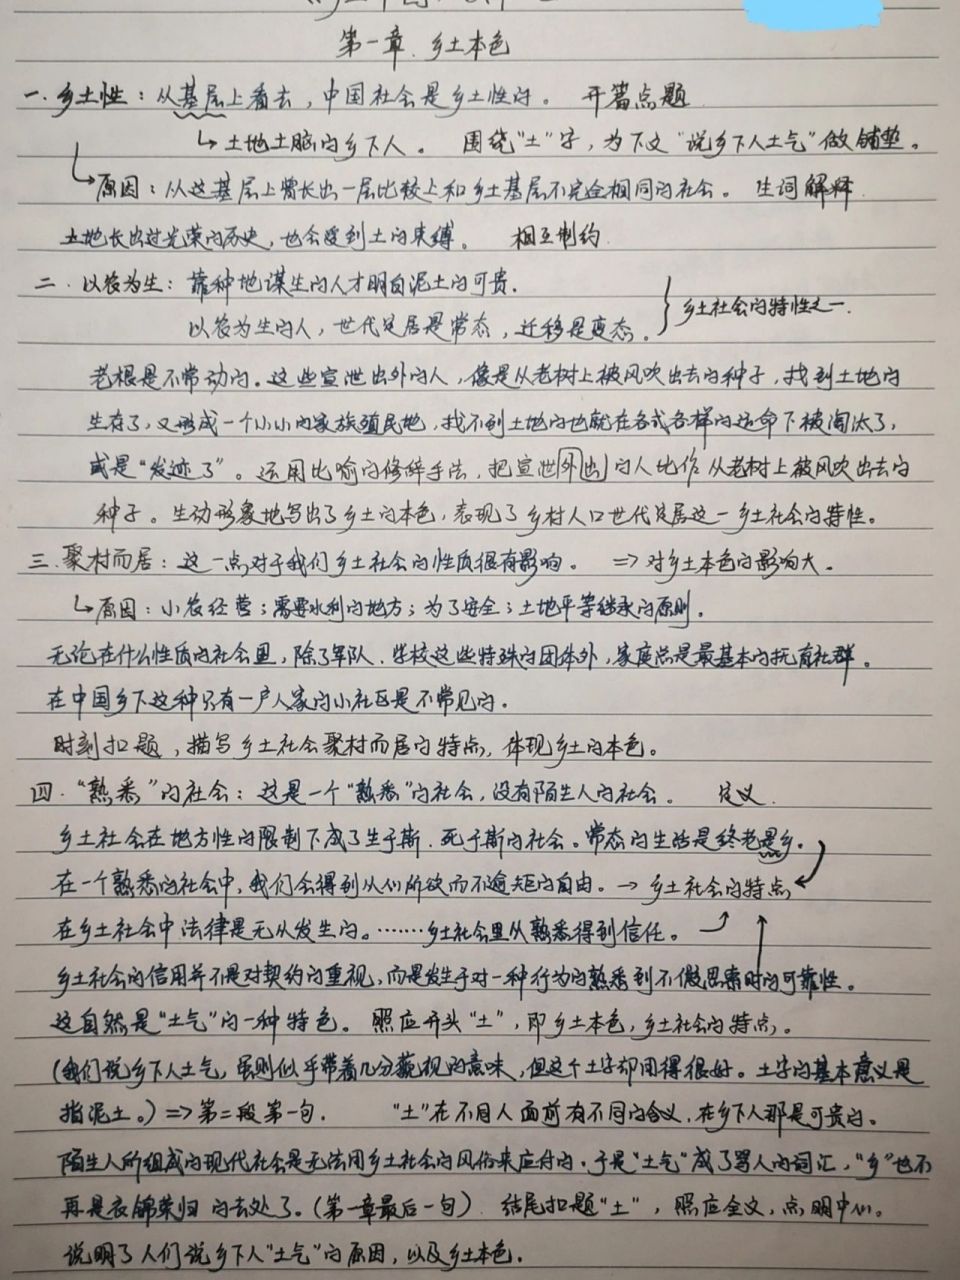 第一章. 乡土本色
一. 乡土性：从基层上看去，中国社会是乡土性的。 开篇点题
↳土地土脑的乡下人。 围绕“土”字，为下文“说乡下人土气”做铺垫。
↳原因：从这基层上曾长出一层比较上和乡土基层不完全相同的社会。 生词解释.
土地长出过光荣的历史，也会受到土的束缚。 相互制约.
二. 以农为生：靠种地谋生的人才明白泥土的可贵.
以农为生的人，世代定居是常态，迁移是变态。 } 乡土社会的特性之一.
老根是不常动的。这些宣泄出外的人，像是从老树上被风吹出去的种子，找到土地的
生存了，又形成一个小小的家族殖民地，找不到土地的也就在各式各样的运命下被淘汰了，
或是“发迹了”。运用比喻的修辞手法，把宣泄外出的人比作从老树上被风吹出去的
种子。生动形象地写出了乡土的本色，表现了乡村人口世代定居这一乡土社会的特性。
三. 聚村而居：这一点对于我们乡土社会的性质很有影响。 ⇒对乡土本色的影响大.
↳原因：小农经营；需要水利的地方；为了安全；土地平等继承的原则.
无论在什么性质的社会里，除了军队、学校这些特殊的团体外，家庭总是最基本的抚育社群。
在中国乡下这种只有一户人家的小社区是不常见的.
时刻扣题，描写乡土社会聚村而居的特点，体现乡土的本色。
四. “熟悉”的社会：这是一个“熟悉”的社会，没有陌生人的社会。 定义.
乡土社会在地方性的限制下成了生于斯、死于斯的社会。常态的生活是终老是乡.
在一个熟悉的社会中，我们会得到从心所欲而不逾矩的自由。→ 乡土社会的特点
在乡土社会中法律是无从发生的。……乡土社会里从熟悉得到信任。
乡土社会的信用并不是对契约的重视，而是发生于对一种行为的熟悉到不假思索时的可靠性。
这自然是“土气”的一种特色。 照应开头“土”，即乡土本色，乡土社会的特点。
(我们说乡下人土气，虽则似乎带着几分藐视的意味，但这个土字却用得很好。土字的基本意义是
指泥土。)⇒第二段第一句. “土”在不同人面前有不同的含义，在乡下人那是可贵的。
陌生人所组成的现代社会是无法用乡土社会的风俗来应付的.于是“土气”成了骂人的词汇，“乡”也不
再是衣锦荣归的去处了。(第一章最后一句) 结尾扣题“土”，照应全文，点明中心。
说明了人们说乡下人“土气”的原因，以及乡土本色.